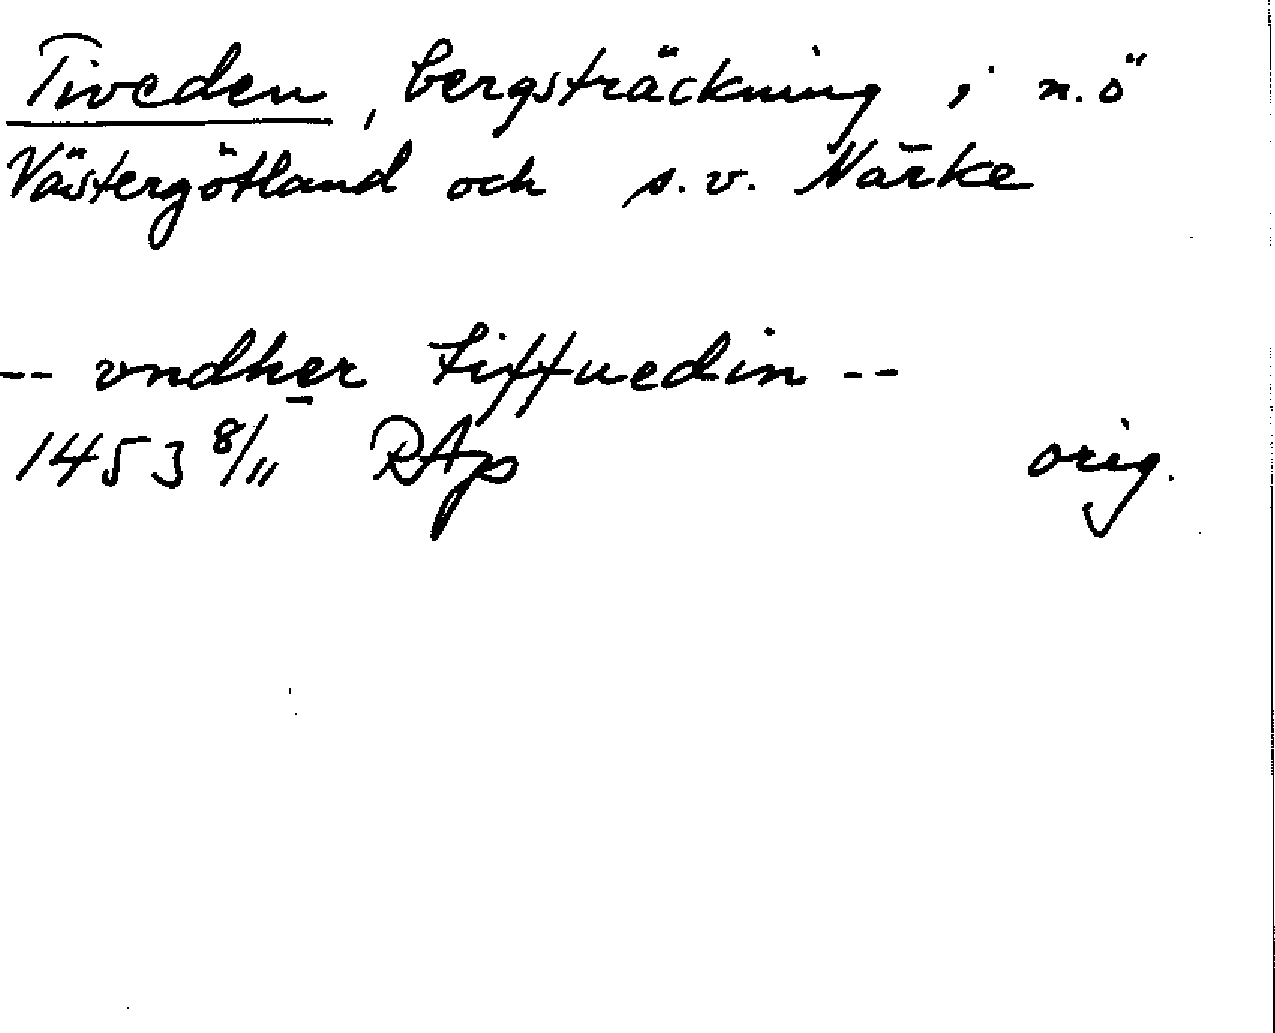 Tiveden, bergsträckning i n.ö
Västergötland och s.v. Närke
-- vndher tiffuedin --
1453 8/11 RAp orig.